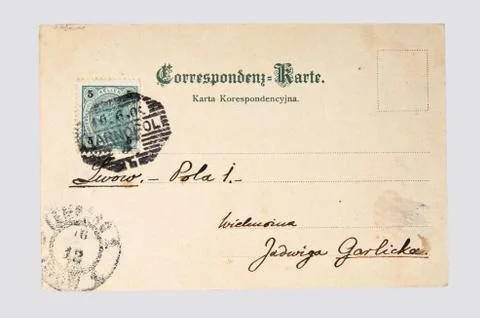 Correspondenz-Karte.
Karta Korespondencyjna.
5
TARNOPOL
Lwow. - Pola 1.-
Wielmożna
Jadwiga Garlicka.
16
12